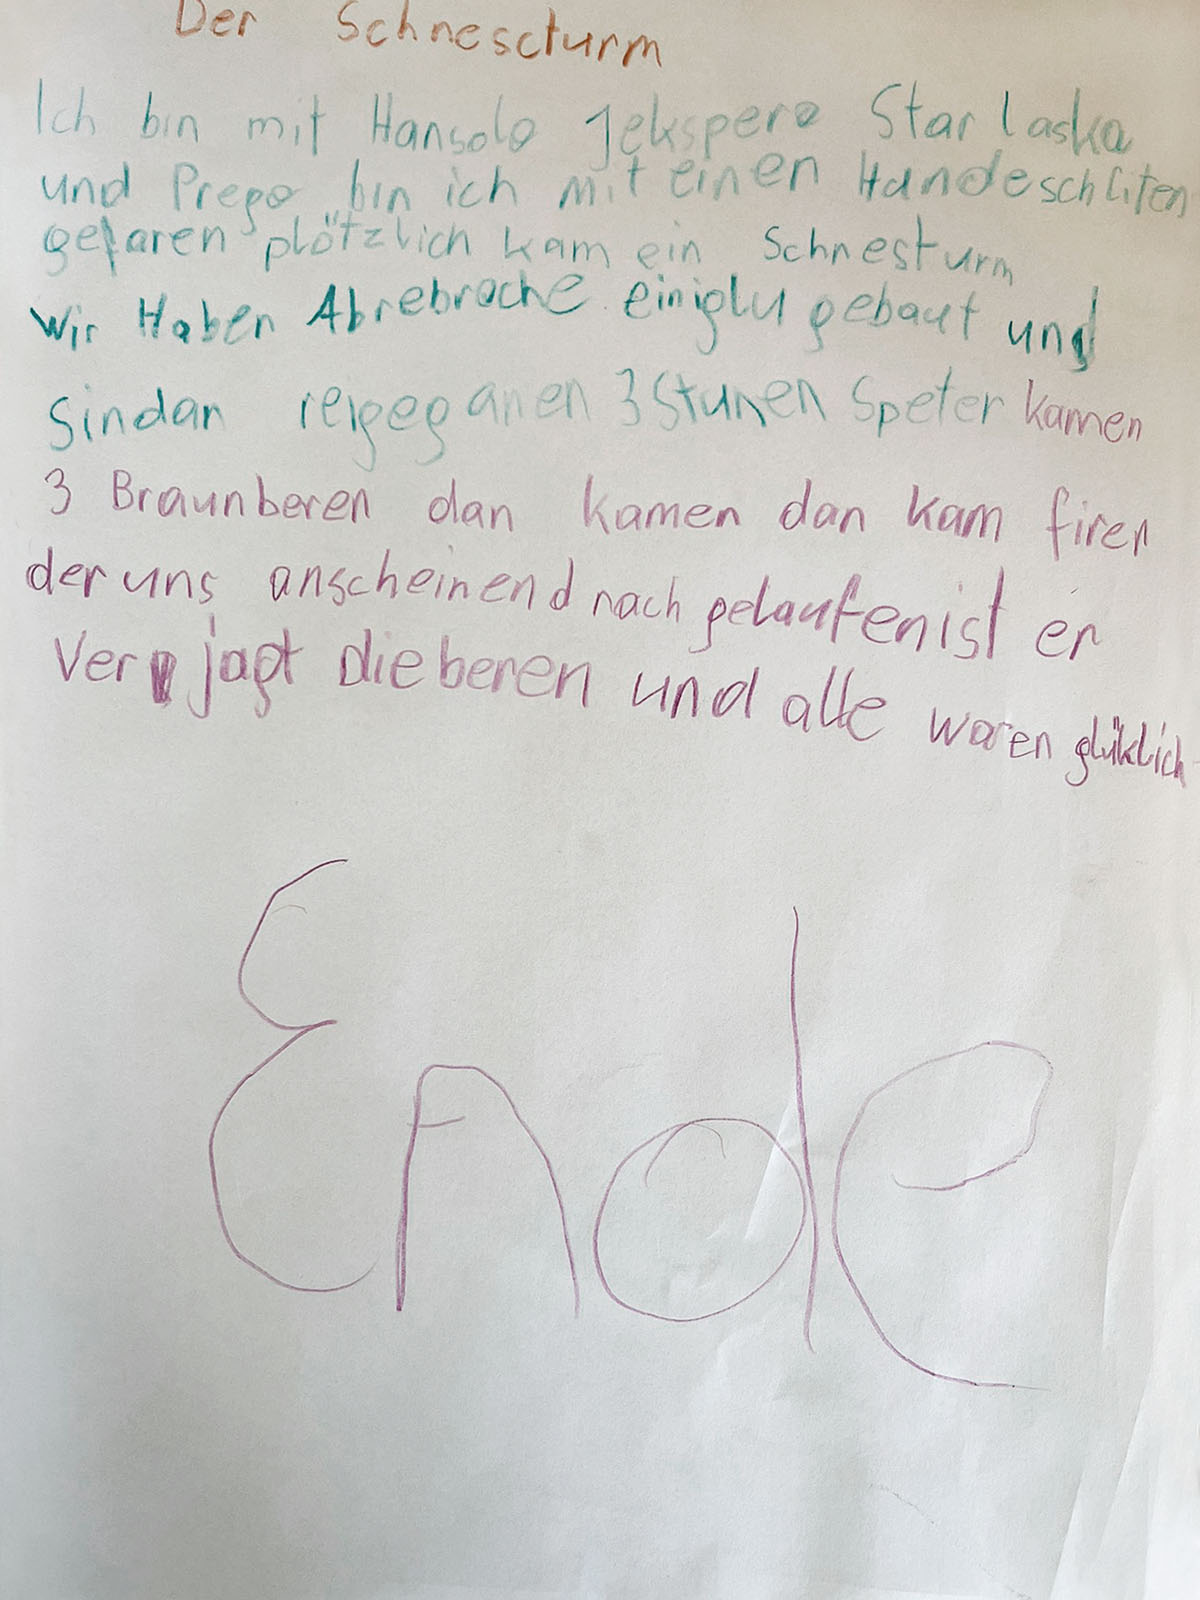 Der Schnescturm
Ich bin mit Hansolo Jekspero Star laska
und Prego bin ich mit einen Hundeschliten
gefaren plötzlich kam ein Schnesturm
wir Haben Abrebroche einiglu gebaut und
Sindan reigeganen 3 Stunen Speter kamen
3 Braunberen dan kamen dan kam firer
der uns anscheinend nach gelaufenist er
Ver jagt dieberen und alle waren glüklich
Ende